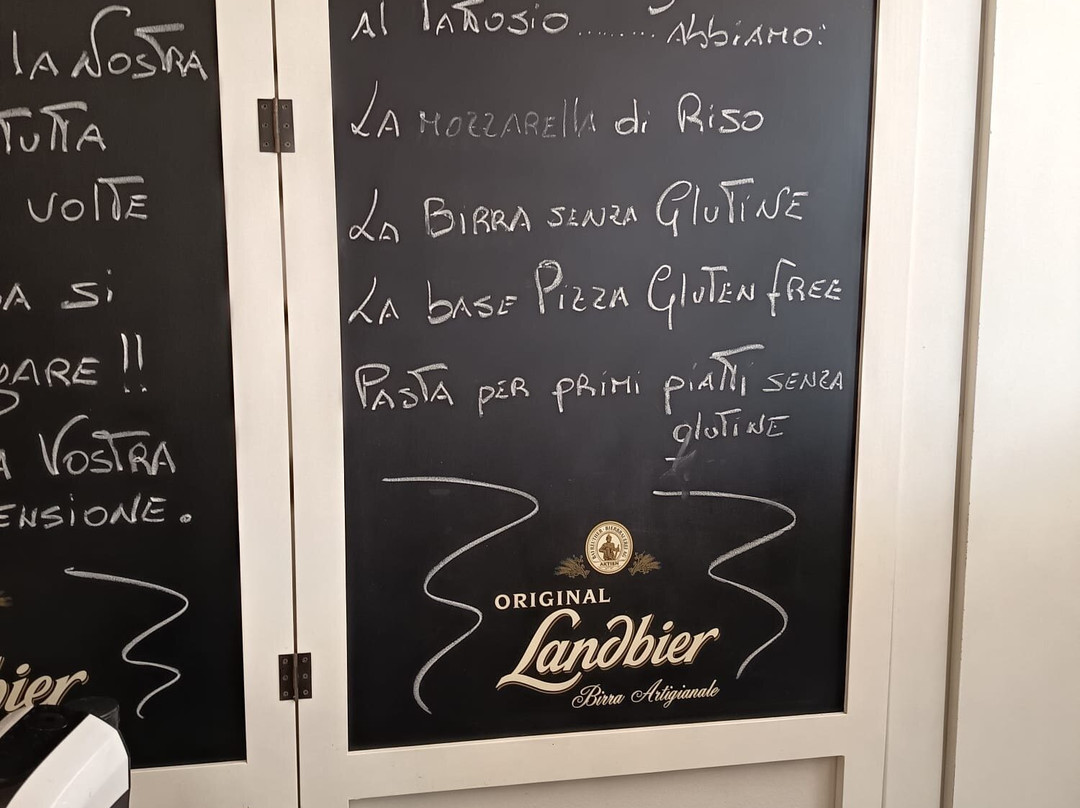 la Nostra
tutta
volte
si
!!
Vostra
ensione.
bier
al lattosio ........ Abbiamo:
La mozzarella di Riso
La Birra senza Glutine
La base Pizza Gluten free
Pasta per primi piatti senza
glutine
AKTIEN
ORIGINAL
Landbier
Birra Artigianale